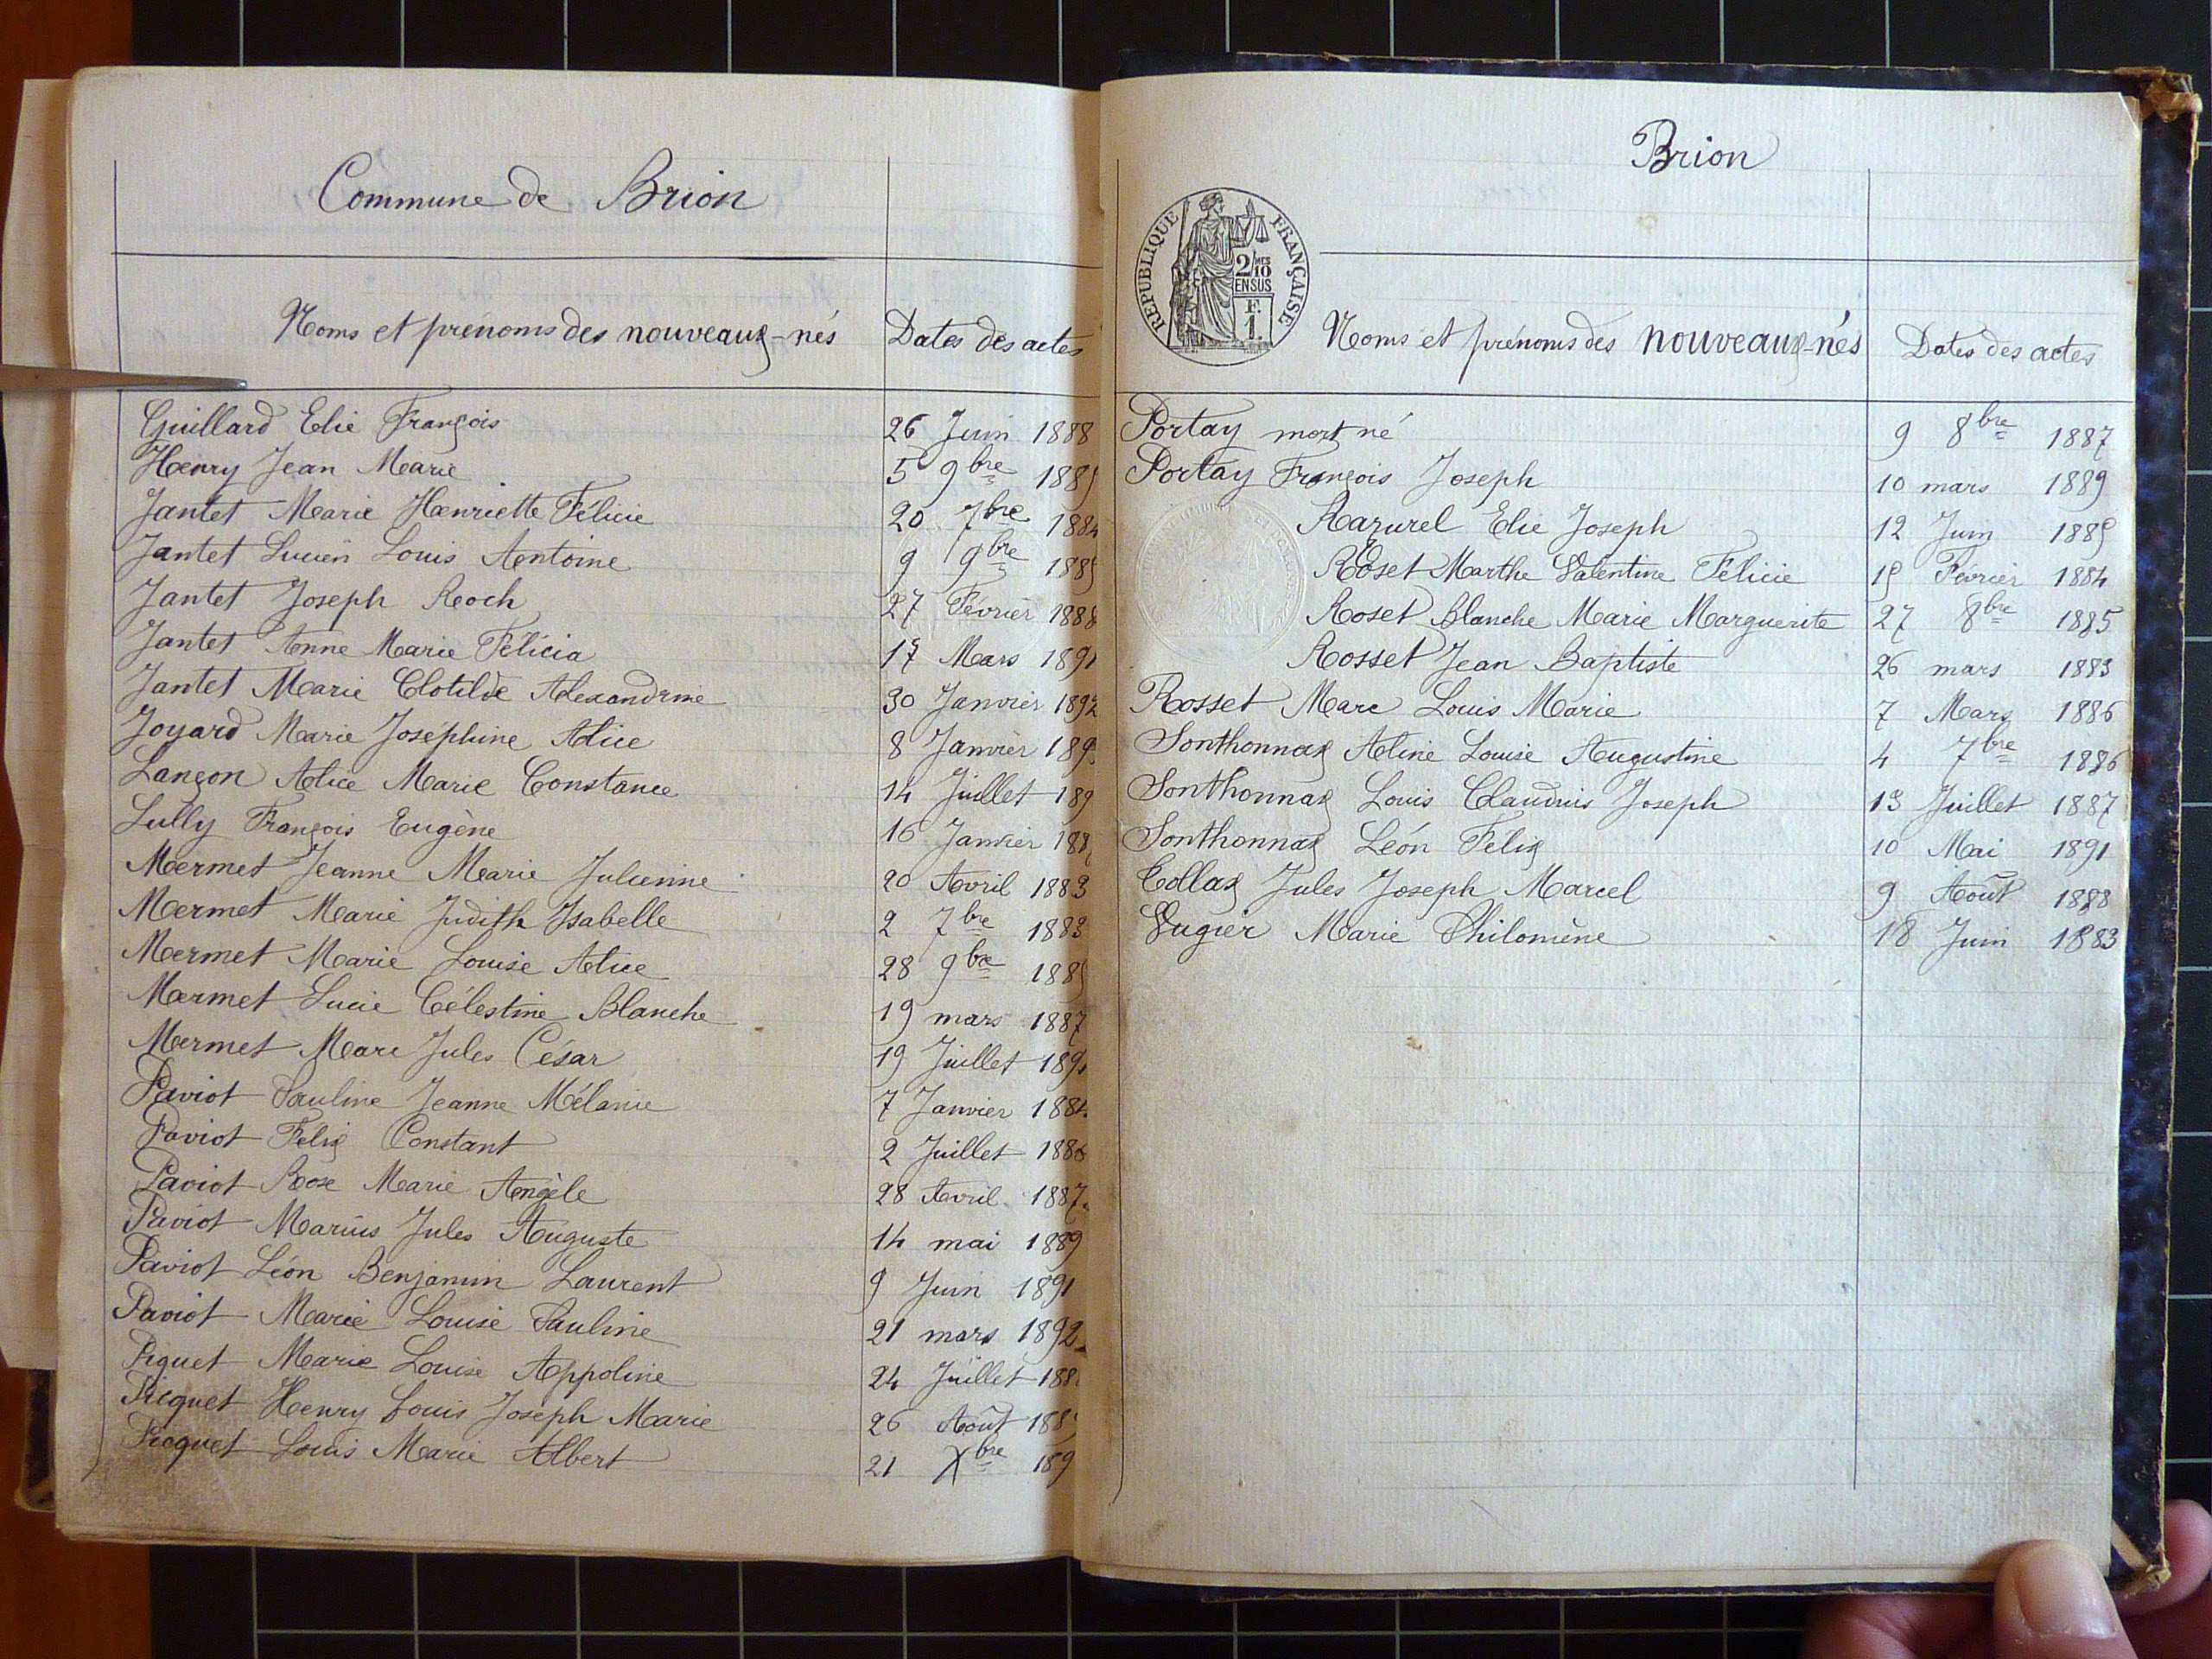 Commune de Brion
Noms et prénoms des nouveaux-nés Dates des actes
Guillard Elie François 26 Juin 1888
Henry Jean Marie 5 9bre 1885
Jantet Marie Henriette Félicie 20 7bre 1884
Jantet Lucien Louis Antoine 9 9bre 1885
Jantet Joseph Roch 27 Février 1888
Jantet Anne Marie Félicia 17 Mars 1891
Jantet Marie Clotilde Alexandrine 30 Janvier 1892
Joyard Marie Joséphine Alice 8 Janvier
Lançon Alice Marie Constance 14 Juillet
Lully François Eugène 16 Janvier
Mermet Jeanne Marie Julienne 20 Avril 1883
Mermet Marie Judith Isabelle 2 7bre 1883
Mermet Marie Louise Alice 28 9bre 1885
Mermet Lucie Célestine Blanche 19 mars 1887
Mermet Marc Jules César 19 Juillet
Paviot Pauline Jeanne Mélanie 7 Janvier 1884
Paviot Félix Constant 2 Juillet 1886
Paviot Rose Marie Angèle 28 Avril 1887
Paviot Marius Jules Auguste 14 mai 1889
Paviot Léon Benjamin Laurent 9 Juin 1891
Paviot Marie Louise Pauline 21 mars 1892
Piquet Marie Louise Appoline 24 Juillet
Picquet Henry Louis Joseph Marie 26 Août
Picquet Louis Marie Albert 21 Xbre
Brion
RÉPUBLIQUE FRANÇAISE
2/10 MES
EN SUS
F.
1.
Noms et prénoms des nouveaux-nés Dates des actes
Portay mort né 9 8bre 1887
Portay François Joseph 10 mars 1889
Razurel Elie Joseph 12 Juin 1885
Roset Marthe Valentine Félicie 15 Février 1884
Roset Blanche Marie Marguerite 27 8bre 1885
Rosset Jean Baptiste 26 mars 1883
Rosset Marc Louis Marie 7 Mars 1886
Sonthonnax Aline Louise Augustine 4 7bre 1886
Sonthonnax Louis Claudius Joseph 13 Juillet 1887
Sonthonnax Léon Félix 10 Mai 1891
Collax Jules Joseph Marcel 9 Août 1888
Vugier Marie Philomène 18 Juin 1883